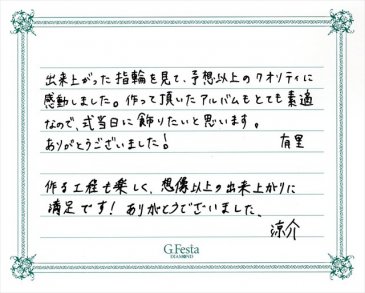 出来上がった指輪を見て、予想以上のクオリティに
感動しました。作って頂いたアルバムもとても素適
なので、式当日に飾りたいと思います。
ありがとうございました! 有里
作る工程も楽しく、想像以上の出来上がりに
満足です! ありがとうございました、
涼介
G.Festa
DIAMOND